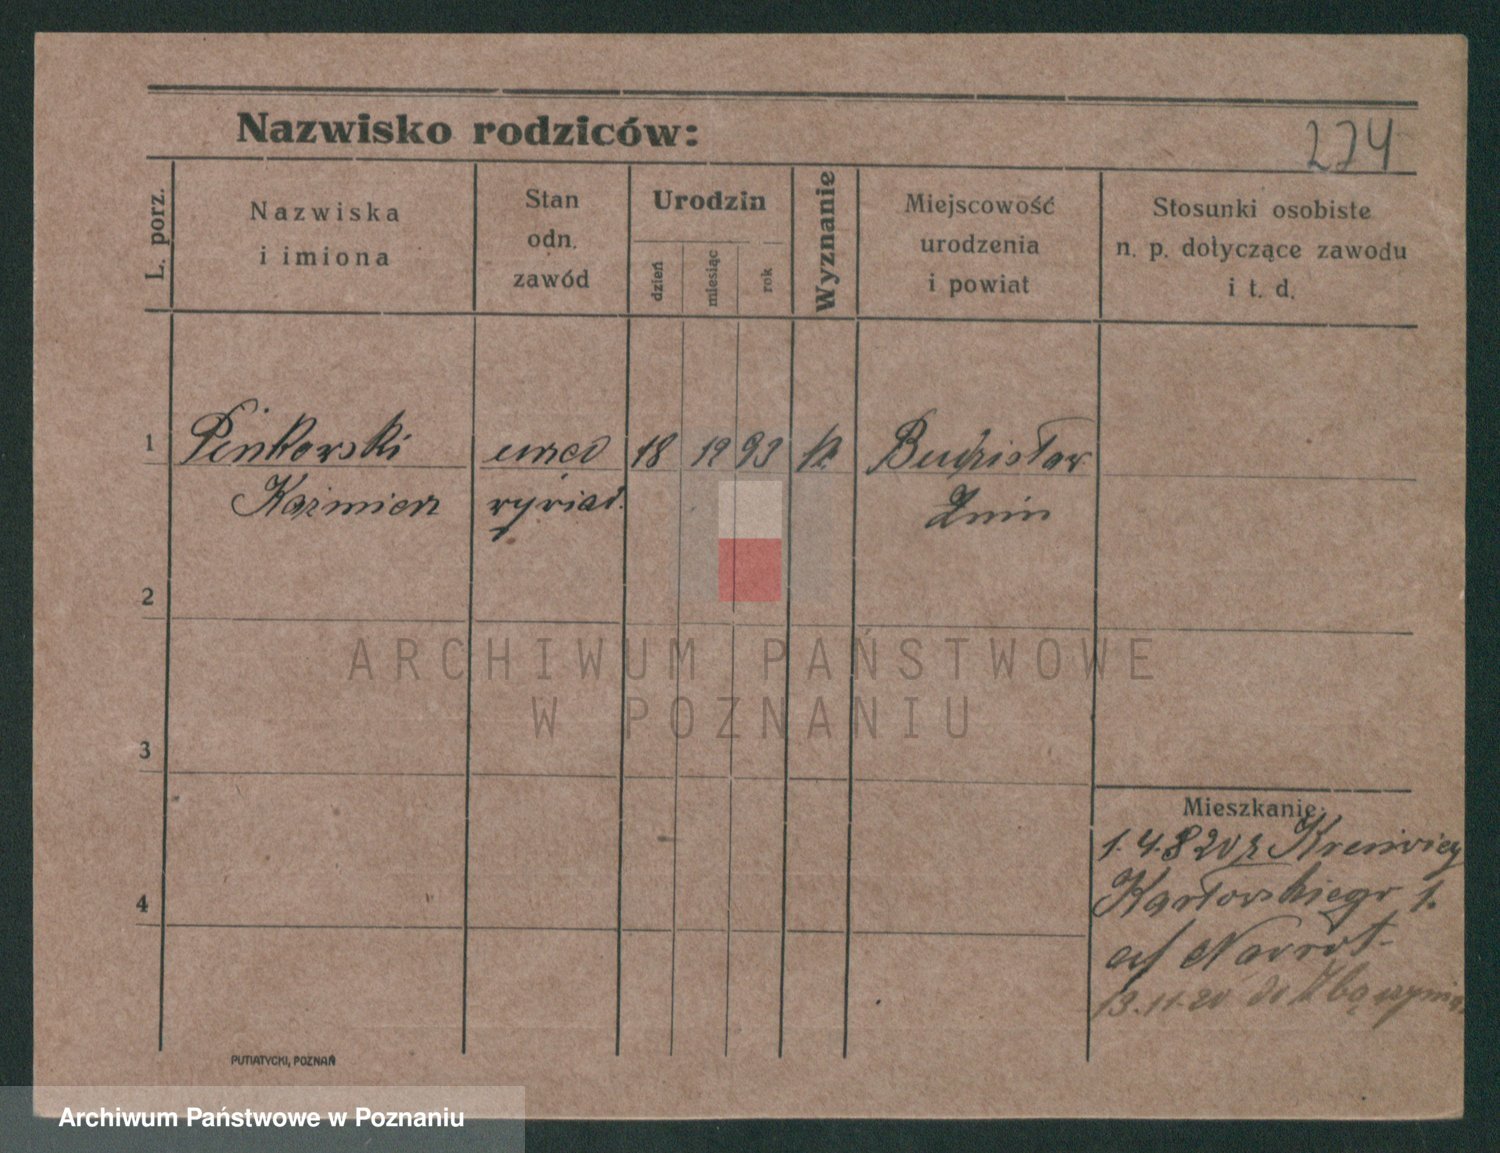 Nazwisko rodziców:
224
L. porz.
Nazwiska
i imiona
Stan
odn.
zawód
Urodzin
dzień
miesiąc
rok
Wyznanie
Miejscowość
urodzenia
i powiat
Stosunki osobiste
n. p. dotyczące zawodu
i t. d.
1
Penkowski
Kazmierz
18 12 93 k.
Budzisław
Żnin
2
3
4
Mieszkanie:
1.4.820 z
1.
Nawrot
13.11.20 do
ARCHIWUM PAŃSTWOWE
W POZNANIU
PUTIATYCKI, POZNAŃ
Archiwum Państwowe w Poznaniu